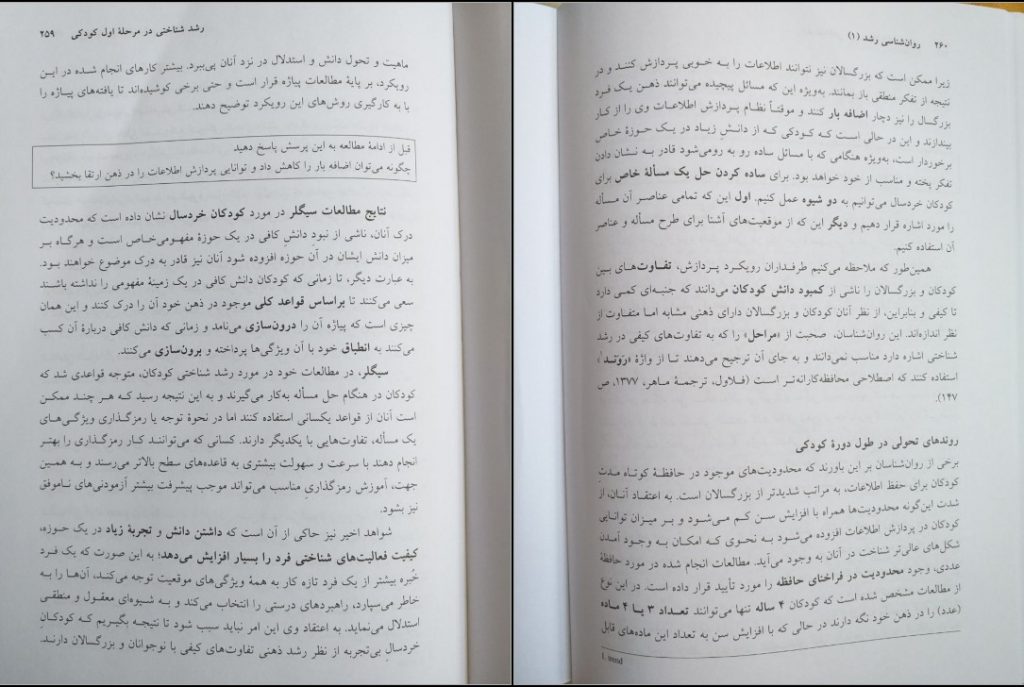 رشد شناختی در مرحلهٔ اول کودکی ۲۵۹
ماهیت و تحول دانش و استدلال در نزد آنان پی‌ببرد. بیشتر کارهای انجام شده در این
رویکرد، بر پایهٔ مطالعات پیاژه قرار است و حتی برخی کوشیده‌اند تا یافته‌های پیاژه را
با به کارگیری روش‌های این رویکرد توضیح دهند.
قبل از ادامهٔ مطالعه به این پرسش پاسخ دهید
چگونه می‌توان اضافه بار را کاهش داد و توانایی پردازش اطلاعات را در ذهن ارتقا بخشید؟
نتایج مطالعات سیگلر در مورد کودکان خردسال نشان داده است که محدودیت
درک آنان، ناشی از نبودِ دانشِ کافی در یک حوزهٔ مفهومی‌خاص است و هرگاه بر
میزان دانش ایشان در آن حوزه افزوده شود آنان نیز قادر به درک موضوع خواهند بود.
به عبارت دیگر، تا زمانی که کودکان دانش کافی در یک زمینهٔ مفهومی را نداشته باشند
سعی می‌کنند تا براساس قواعد کلی موجود در ذهن خود آن را درک کنند و این همان
چیزی است که پیاژه آن را درون‌سازی می‌نامد و زمانی که دانش کافی دربارهٔ آن کسب
می‌کنند به انطباق خود با آن ویژگی‌ها پرداخته و برون‌سازی می‌کنند.
سیگلر، در مطالعات خود در مورد رشد شناختی کودکان، متوجه قواعدی شد که
کودکان در هنگام حل مسأله به‌کار می‌گیرند و به این نتیجه رسید که هر چند ممکن
است آنان از قواعد یکسانی استفاده کنند اما در نحوهٔ توجه یا رمزگذاری ویژگی‌های
یک مسأله، تفاوت‌هایی با یکدیگر دارند. کسانی که می‌توانند کار رمزگذاری را بهتر
انجام دهند با سرعت و سهولت بیشتری به قاعده‌های سطح بالاتر می‌رسند و به همین
جهت، آموزش رمزگذاریِ مناسب می‌تواند موجب پیشرفت بیشتر آزمودنی‌های ناموفق
نیز بشود.
شواهد اخیر نیز حاکی از آن است که داشتن دانش و تجربهٔ زیاد در یک حوزه،
کیفیت فعالیت‌های شناختی فرد را بسیار افزایش می‌دهد؛ به این صورت که یک فرد
خُبره بیشتر از یک فرد تازه کار به همهٔ ویژگی‌های موقعیت توجه می‌کند، آن‌ها را به
خاطر می‌سپارد، راهبردهای درستی را انتخاب می‌کند و به شیوه‌ای معقول و منطقی
استدلال می‌نماید. به اعتقاد وی این امر نباید سبب شود تا نتیجه بگیریم که کودکانِ
خردسالِ بی‌تجربه از نظر رشد ذهنی تفاوت‌های کیفی با نوجوانان و بزرگسالان دارند.
۲۶۰ روان‌شناسی رشد (۱)
زیرا ممکن است که بزرگسالان نیز نتوانند اطلاعات را به خوبی پردازش کنند و در
نتیجه از تفکر منطقی باز بمانند. به‌ویژه این که مسائل پیچیده می‌توانند ذهن یک فرد
بزرگسال را نیز دچار اضافه بار کنند و موقتاً نظام پردازش اطلاعات وی را از کار
بیندازند و این در حالی است که کودکی که از دانش زیاد در یک حوزهٔ خاص
برخوردار است، به‌ویژه هنگامی که با مسائل ساده رو به رومی‌شود قادر به نشان دادن
تفکر پخته و مناسب از خود خواهد بود. برای ساده کردن حل یک مسألهٔ خاص برای
کودکان خردسال می‌توانیم به دو شیوه عمل کنیم. اول این که تمامی عناصر آن مسأله
را مورد اشاره قرار دهیم و دیگر این که از موقعیت‌های آشنا برای طرح مسأله و عناصر
آن استفاده کنیم.
همین‌طور که ملاحظه می‌کنیم طرفداران رویکرد پردازش، تفاوت‌های بین
کودکان و بزرگسالان را ناشی از کمبود دانش کودکان می‌دانند که جنبه‌ای کمی دارد
تا کیفی و بنابراین، از نظر آنان کودکان و بزرگسالان دارای ذهنی مشابه اما متفاوت از
نظر اندازه‌اند. این روان‌شناسان، صحبت از «مراحل» را که به تفاوت‌های کیفی در رشد
شناختی اشاره دارد مناسب نمی‌دانند و به جای آن ترجیح می‌دهند تا از واژهٔ «رَوَند¹»
استفاده کنند که اصطلاحی محافظه‌کارانه‌تر است (فلاول، ترجمهٔ ماهر، ۱۳۷۷، ص
۱۴۷).
روندهای تحولی در طول دورهٔ کودکی
برخی از روان‌شناسان بر این باورند که محدودیت‌های موجود در حافظهٔ کوتاه مدتِ
کودکان برای حفظ اطلاعات، به مراتب شدیدتر از بزرگسالان است. به اعتقاد آنان، از
شدت این‌گونه محدودیت‌ها همراه با افزایش سن کم می‌شود و بر میزان توانایی
کودکان در پردازش اطلاعات افزوده می‌شود به نحوی که امکان به وجود آمدن
شکل‌های عالی‌تر شناخت در آنان به وجود می‌آید. مطالعات انجام شده در مورد حافظهٔ
عددی، وجود محدودیت در فراخنای حافظه را مورد تأیید قرار داده است. در این نوع
از مطالعات مشخص شده است که کودکان ۴ ساله تنها می‌توانند تعداد ۳ یا ۴ ماده
(عدد) را در ذهن خود نگه دارند در حالی که با افزایش سن به تعداد این ماده‌های قابل
1. trend